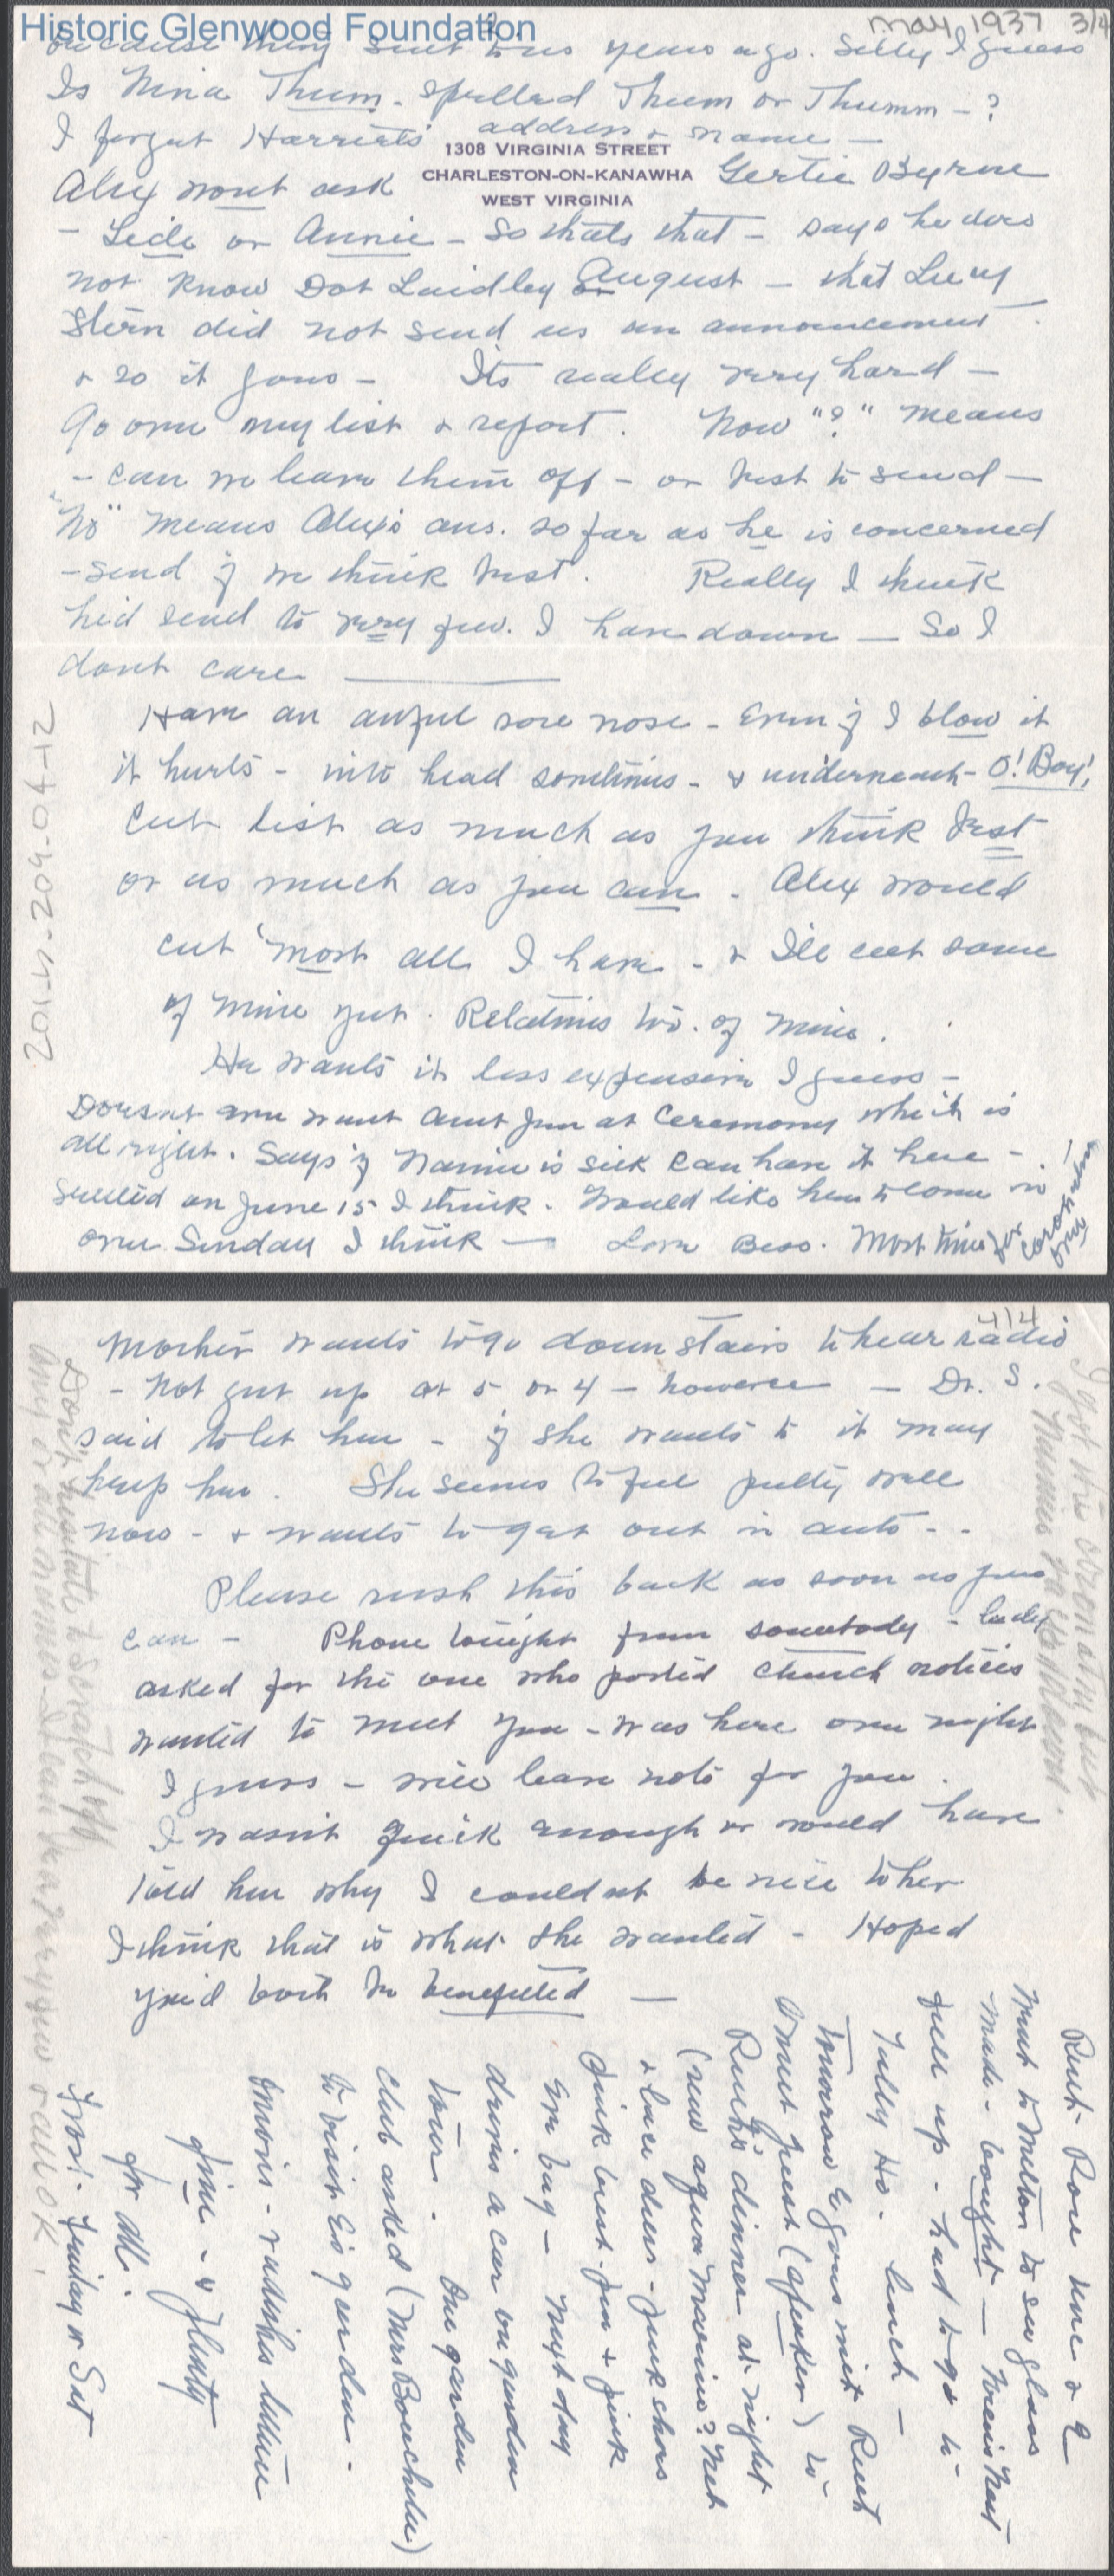 Historic Glenwood Foundation
May, 1937 3/4
because they sent two years ago. Silly I guess
Is Nina Thum - spelled Thum or Thumm - ?
I forget Harriet's address & name -
1308 VIRGINIA STREET
CHARLESTON-ON-KANAWHA
WEST VIRGINIA
Alex wont ask Gertie Byrne
- Lide or Annie - So thats that - says he does
not know Dot Laidley August - that Lucy
Stern did not send us an announcement.
& so it goes - Its really very hard -
Go over my list & report. Now "?" means
- can we leave them off - or best to send -
"No" means Alex's ans. so far as he is concerned
- send if we think best. Really I think
he'd send to very few. I have down - So I
dont care
Have an awful sore nose - Even if I blow it
it hurts - into head sometimes - & underneath - O! Boy!
Cut list as much as you think best
or as much as you can. Alex would
cut most all I have - & I'll cut some
of mine yet. Relatives too. of mine.
He wants it less expensive I guess -
Doesnt even want Aunt Jen at Ceremony which is
all right. Says if Nannie is sick can have it here -
Settled on June 15 I think. Would like her to come in
over Sunday I think - Love Bess. Most time for
2014-209-04-12
4/4
Mother wants to go down stairs to hear radio
- Not get up at 5 or 4 - however - Dr. S.
said to let her - if she wants to it may
help her. She seems to feel pretty well
now - & wants to get out in auto - -
Please rush this back as soon as you
can - Phone tonight from somebody - lady
asked for the one who posted church notices
wanted to meet you - was here over night
I guess - will leave note for you.
I wasnt quick enough or would have
told her why I couldnt be nice to her
I think that is what she wanted - Hoped
you'd both be benefitted -
I got the
Dont hesitate to scratch off
any or all
Ruth Rose Une & I
went to Milton to see glass
made - bought -
full up - had to go to
Tully Ho. lunch -
Tomorrow E goes meet Ruth
& meet guest (speaker) to
Ruth's dinner at night
(new aqua marine? net
& lace dress - pink shoes
pink
Eve bag - Next day
drives a car on garden
tour. One garden
club asked (Mrs Bouchelle)
to visit E's garden.
- radishes
fine - & plenty
for all.
Frost Friday or Sat